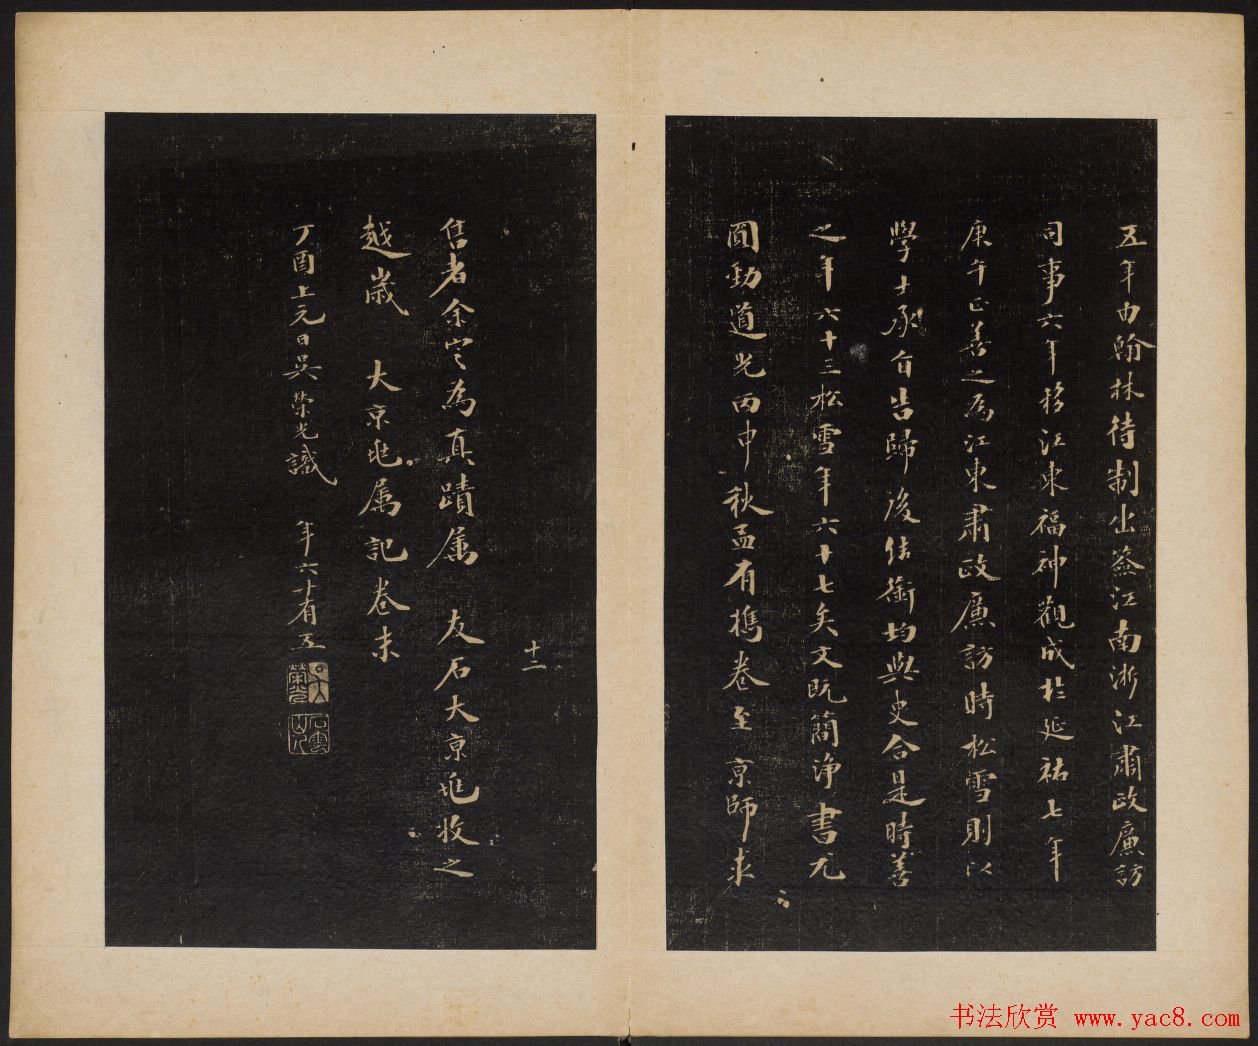 五年由翰林待制出僉江南浙江肅政廉訪
司事六年移江東福神觀成於延祐七年
庚午正善之爲江東肅政廉訪時松雪則以
學士承旨告歸後結銜均與史合是時善
之年六十三松雪年六十七矣文既簡淨書尤
圓勁道光丙申秋孟有攜卷至京師求
十二
售者余定為真蹟属 友石大京兆收之
越歲 大京兆属記卷末
丁酉上元日吳榮光識 年六十有五
書法欣赏 www.yac8.com